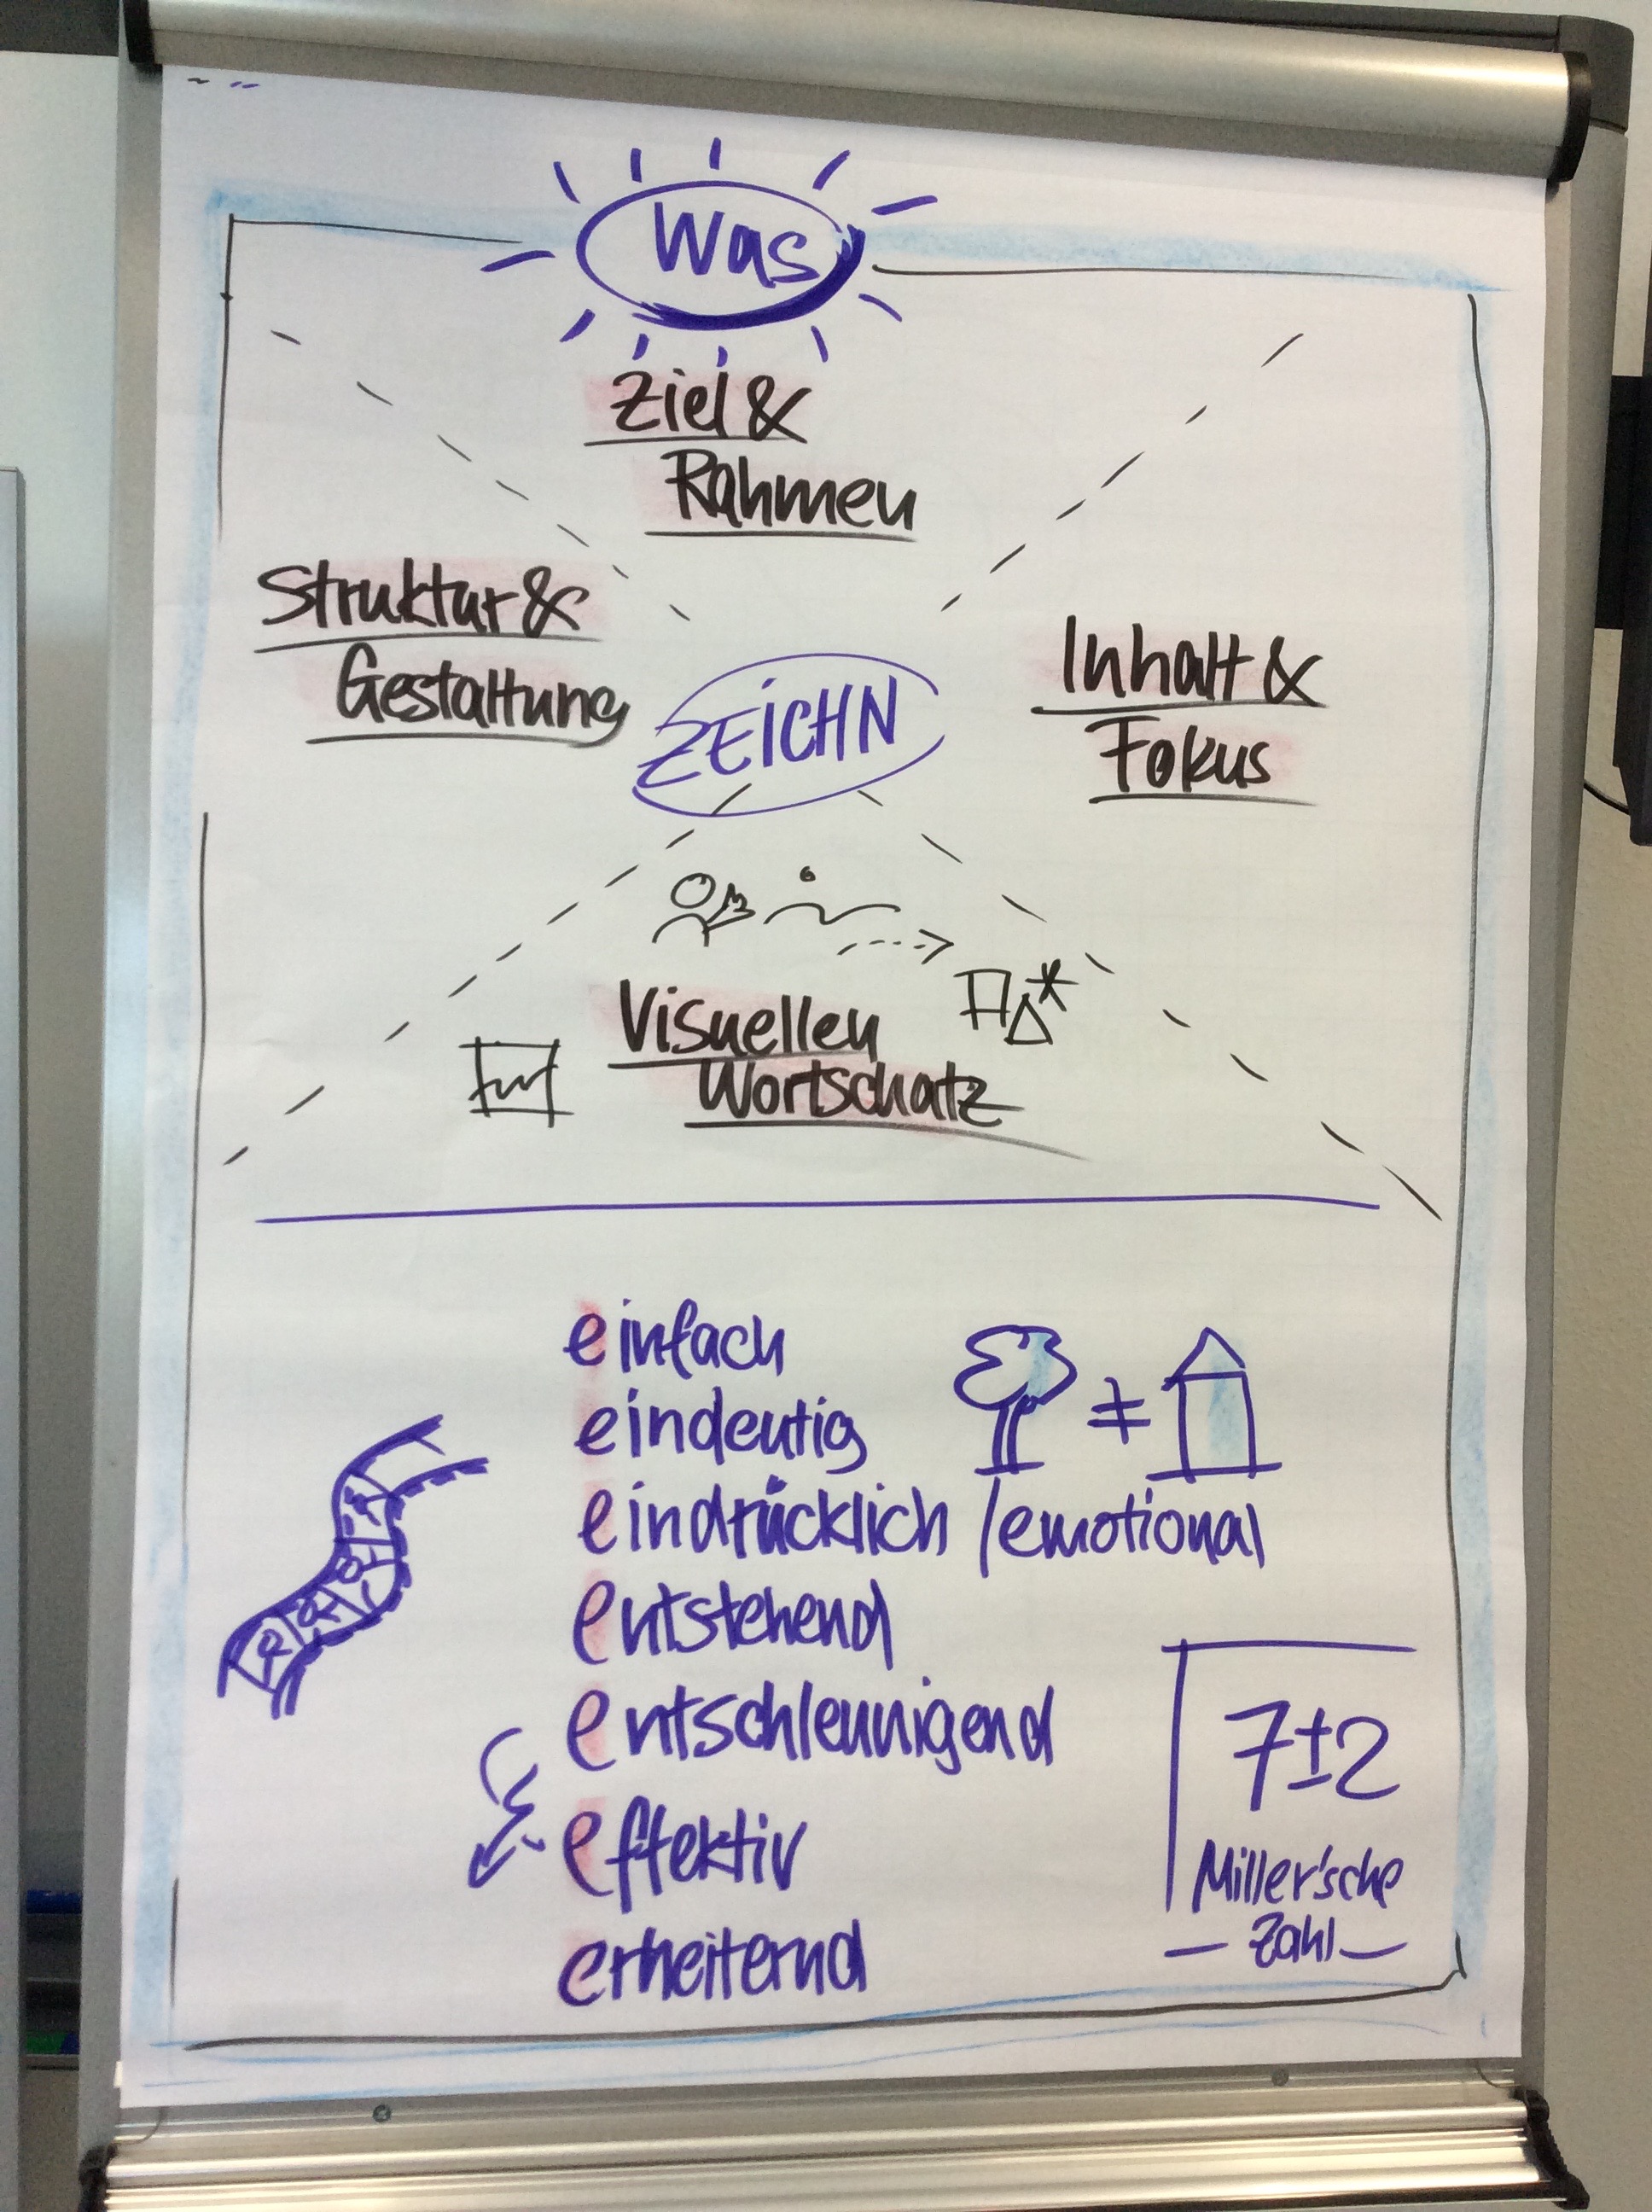 Was
Ziel &
Rahmen
Struktur &
Gestaltung
ZEICHN
Inhalt &
Fokus
Visuellen
Wortschatz
einfach
eindeutig
≠
eindrücklich / emotional
entstehend
entschleunigend
effektiv
erheiternd
7±2
Miller'sche
– Zahl –